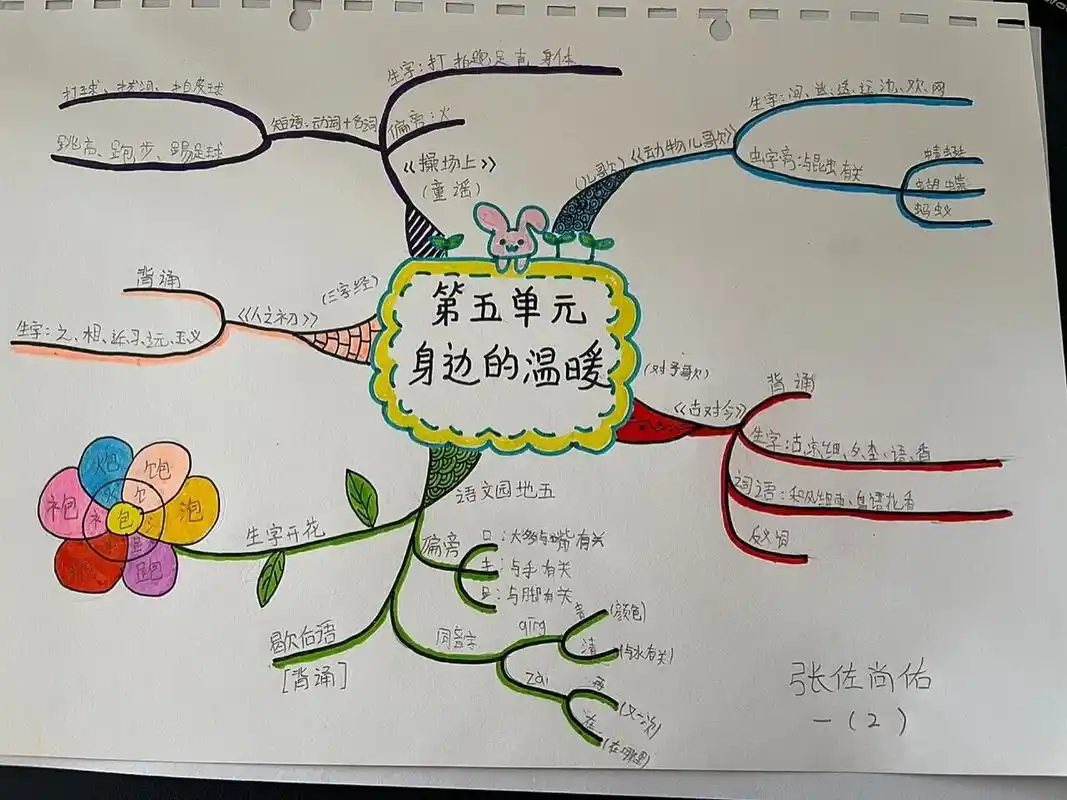 第五单元
身边的温暖
生字:打拍跑足声身体
偏旁:火
《操场上》
(童谣)
短语:动词+名词
打球、拔河、拍皮球
跳高、跑步、踢足球
(儿歌)《动物儿歌》
生字:间、迷、造、运、池、欢、网
虫字旁:与昆虫有关
蜻蜓
蝴蝶
蚂蚁
(三字经)
《人之初》
背诵
生字:之、相、近、习、远、玉、义
(对子歌)
《古对今》
背诵
生字:古、凉、细、夕、李、语、香
词语:和风细雨、鸟语花香
反义词
语文园地五
生字开花
包
炮
饱
泡
跑
袍
偏旁
口:大多与嘴有关
扌:与手有关
:与脚有关
同音字
qīng
青(颜色)
清(与水有关)
zài
再(又一次)
在(在哪里)
歇后语
[背诵]
张佐尚佑
一(2)